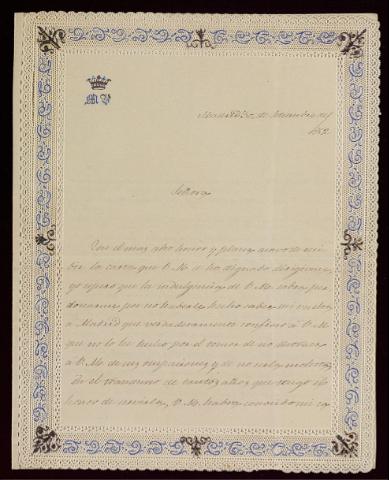 MV
Madrid 30 de Setiembre de
1852.
Señora
Con el mas alto honor y placer acavo de reci
bir la carta que V. M. se ha dignado dirigirme
yo espero que la indulgencia de V. M. sabra per
donarme por no haberle hecho saber mi vuelta
a Madrid que verdaderamente confieso á V. M.
que no lo he hecho por el temor de no distraer
a V. M. de sus ocupaciones y de no serle molesta.
En el transcurso de tantos años que tengo el
honor de servirla, V. M. habra conocido mi ca